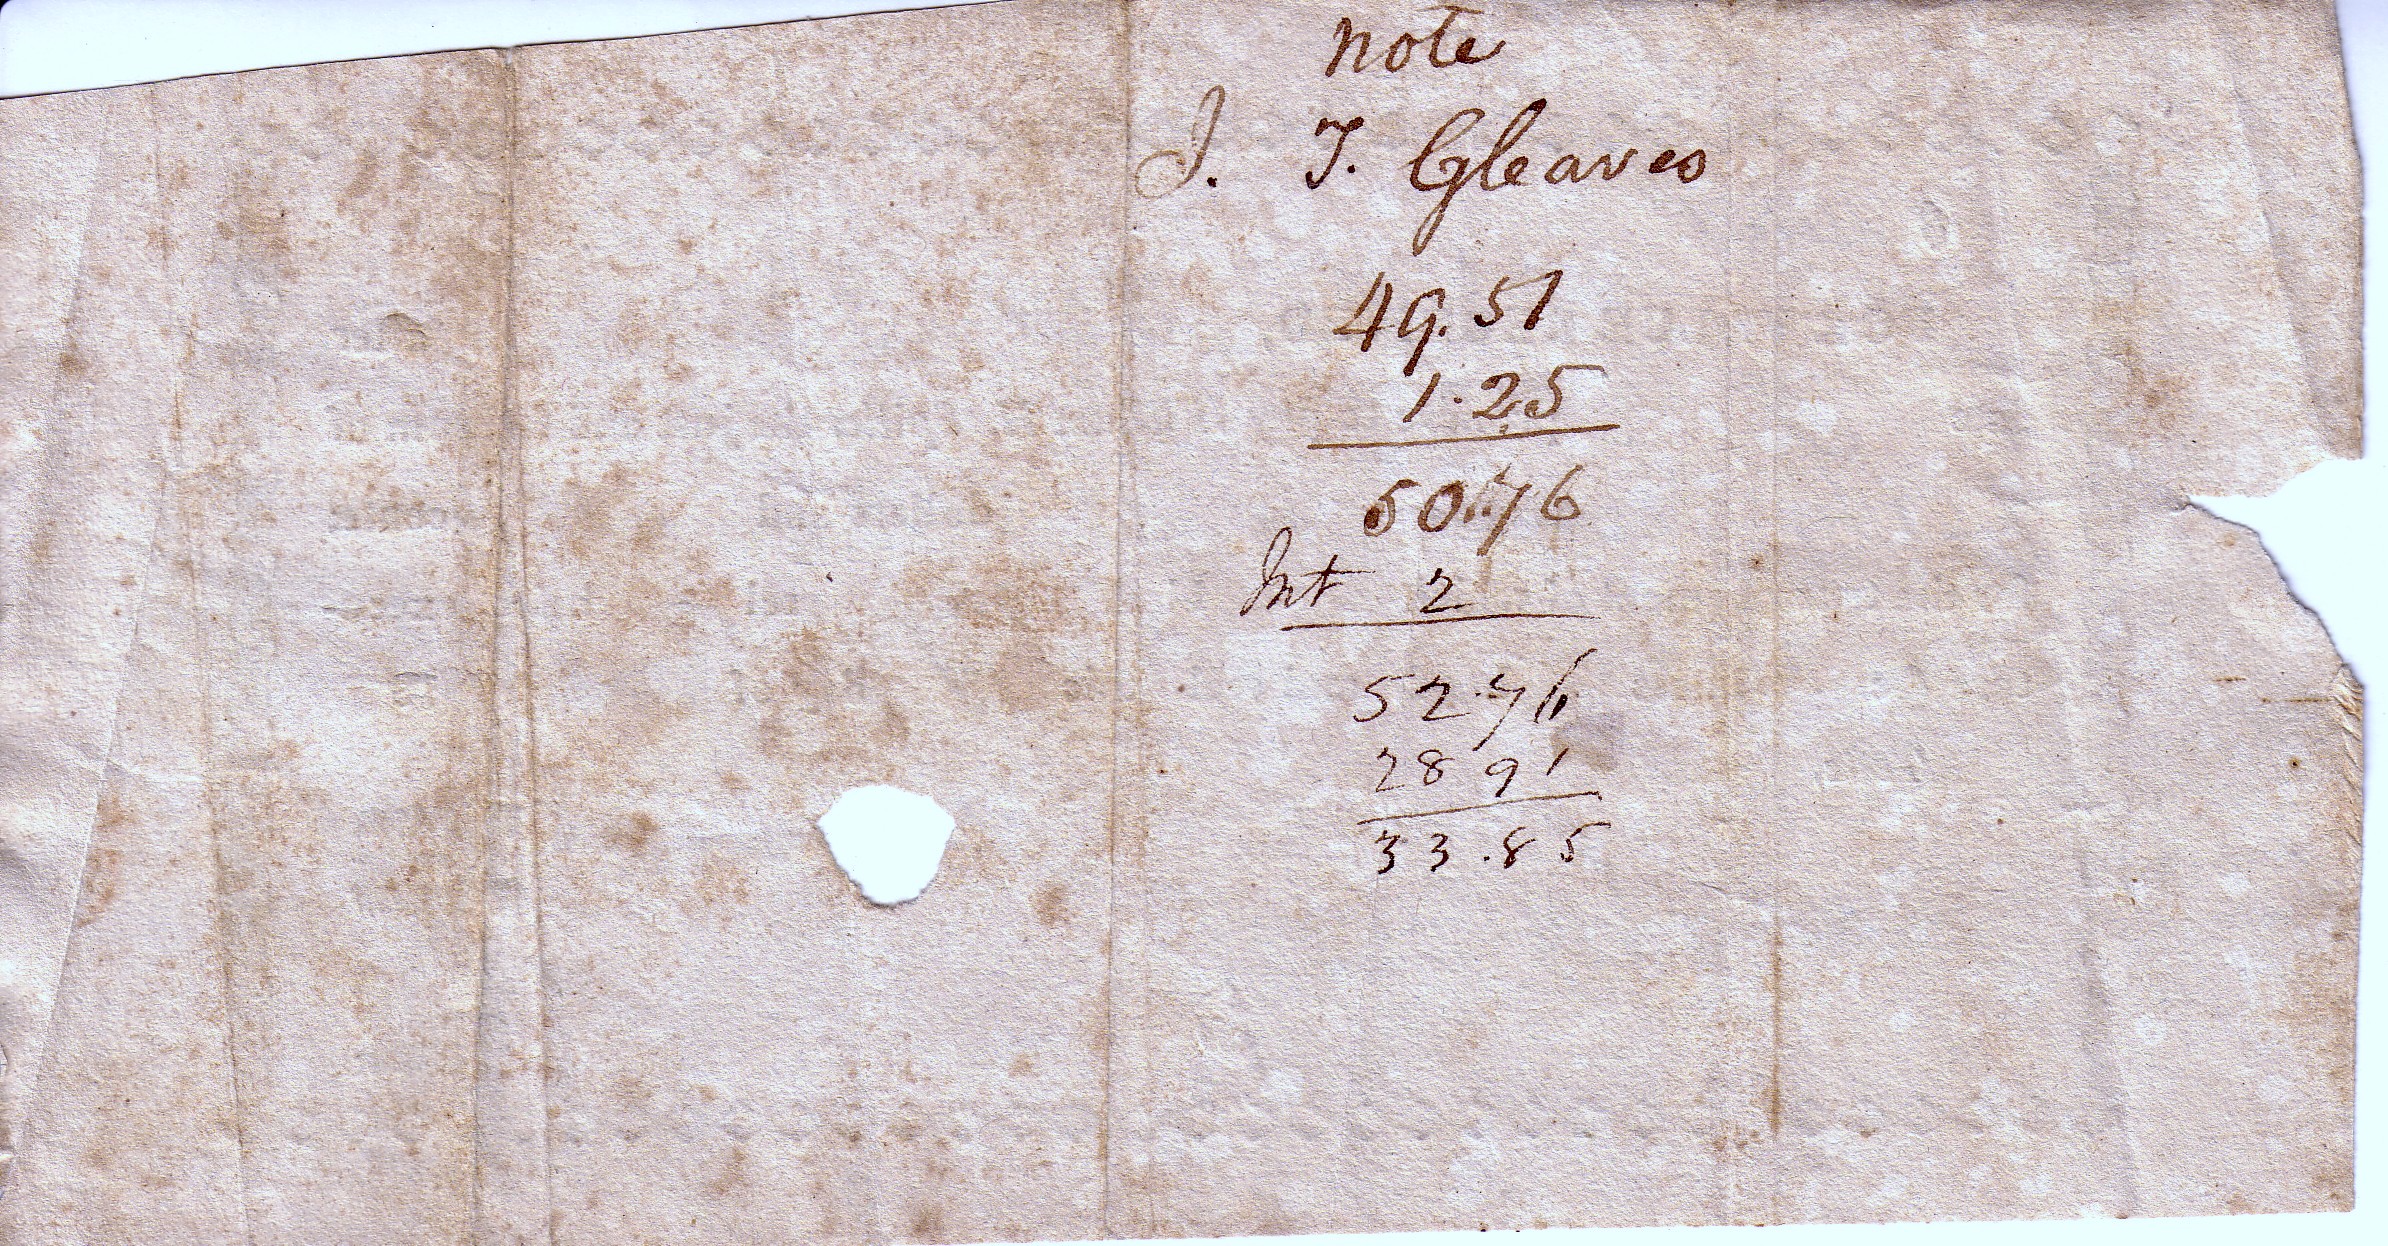 note
J. T. Gleaves
49.51
1.25
50.76
Int 2
52.76
28 91
33.85